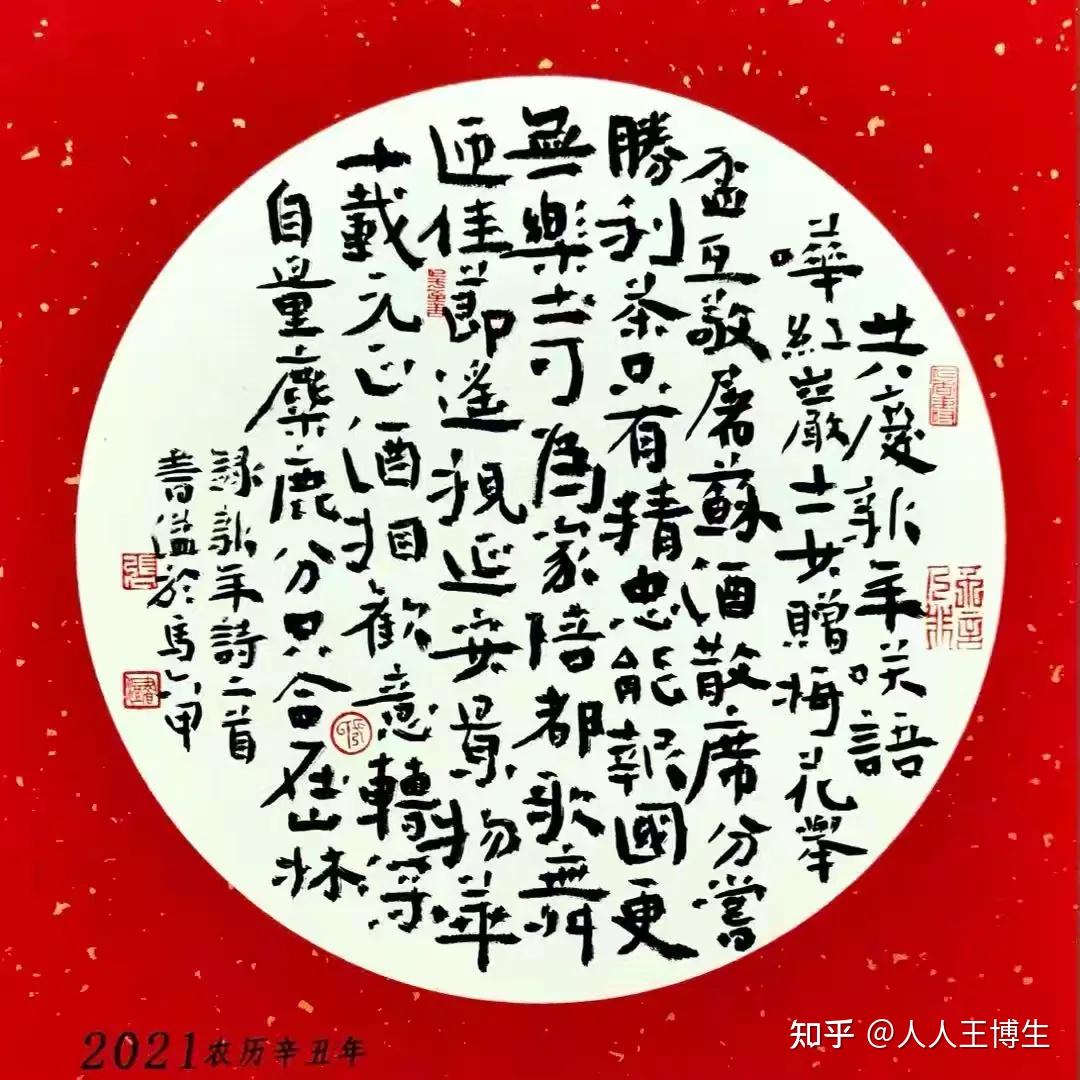 共慶新年笑語
嘩紅巖士女贈梅花舉
盃互敬屠蘇酒散席分嘗
勝利茶只有精忠能報國更
無樂土可為家陪都歌舞
迎佳節遙視延安景物華
十載元正酒相歡意轉深
自量麋鹿分只合在山林
録新年詩二首
書溢於馬甲
張
2021农历辛丑年
知乎 @人人王博生